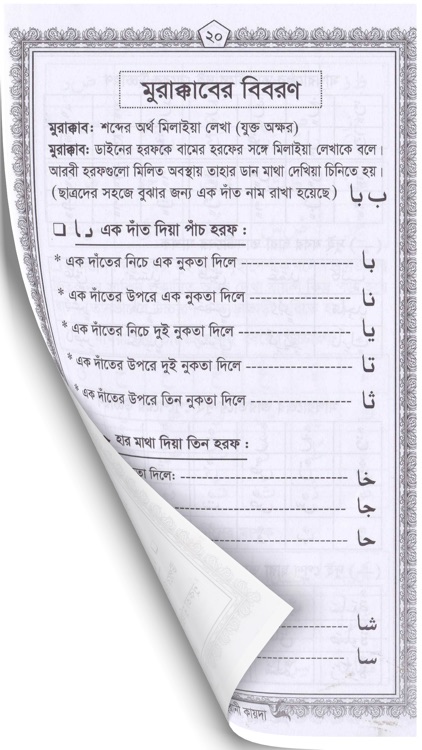 ২০
মুরাক্কাবের বিবরণ
মুরাক্কাব: শব্দের অর্থ মিলাইয়া লেখা (যুক্ত অক্ষর)
মুরাক্কাব: ডাইনের হরফকে বামের হরফের সঙ্গে মিলাইয়া লেখাকে বলে।
আরবী হরফগুলো মিলিত অবস্থায় তাহার ডান মাথা দেখিয়া চিনিতে হয়।
(ছাত্রদের সহজে বুঝার জন্য এক দাঁত নাম রাখা হয়েছে) ب با
এক দাঁত দিয়া পাঁচ হরফ :
* এক দাঁতের নিচে এক নুকতা দিলে ---------------------- با
* এক দাঁতের উপরে এক নুকতা দিলে -------------------- نا
* এক দাঁতের নিচে দুই নুকতা দিলে ---------------------- يا
* এক দাঁতের উপরে দুই নুকতা দিলে -------------------- تا
* এক দাঁতের উপরে তিন নুকতা দিলে -------------------- ثا
হার মাথা দিয়া তিন হরফ :
তা দিলে: -------------------------------- خا
-------------------------------- جا
-------------------------------- حا
---------------- شا
---------------- سا
কায়দা